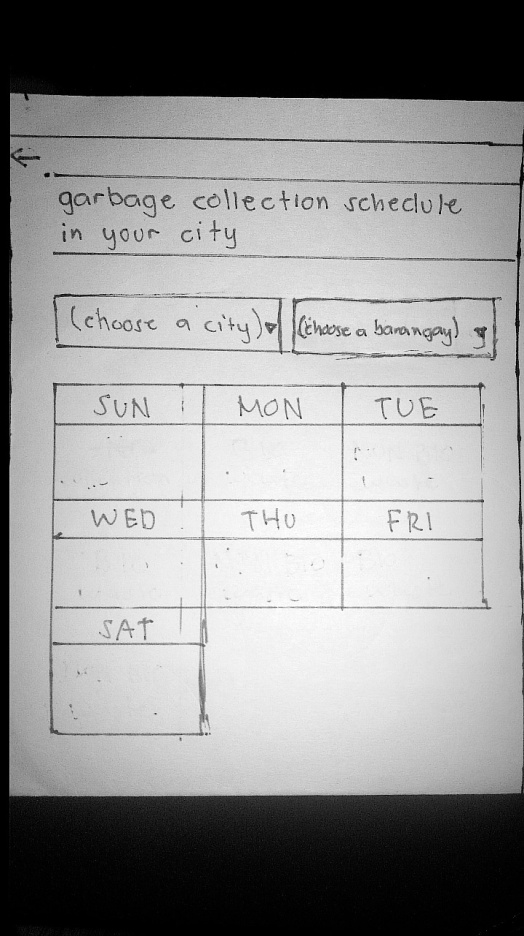 garbage collection schedule
in your city
(choose a city) (choose a barangay)
SUN MON TUE
WED THU FRI
SAT